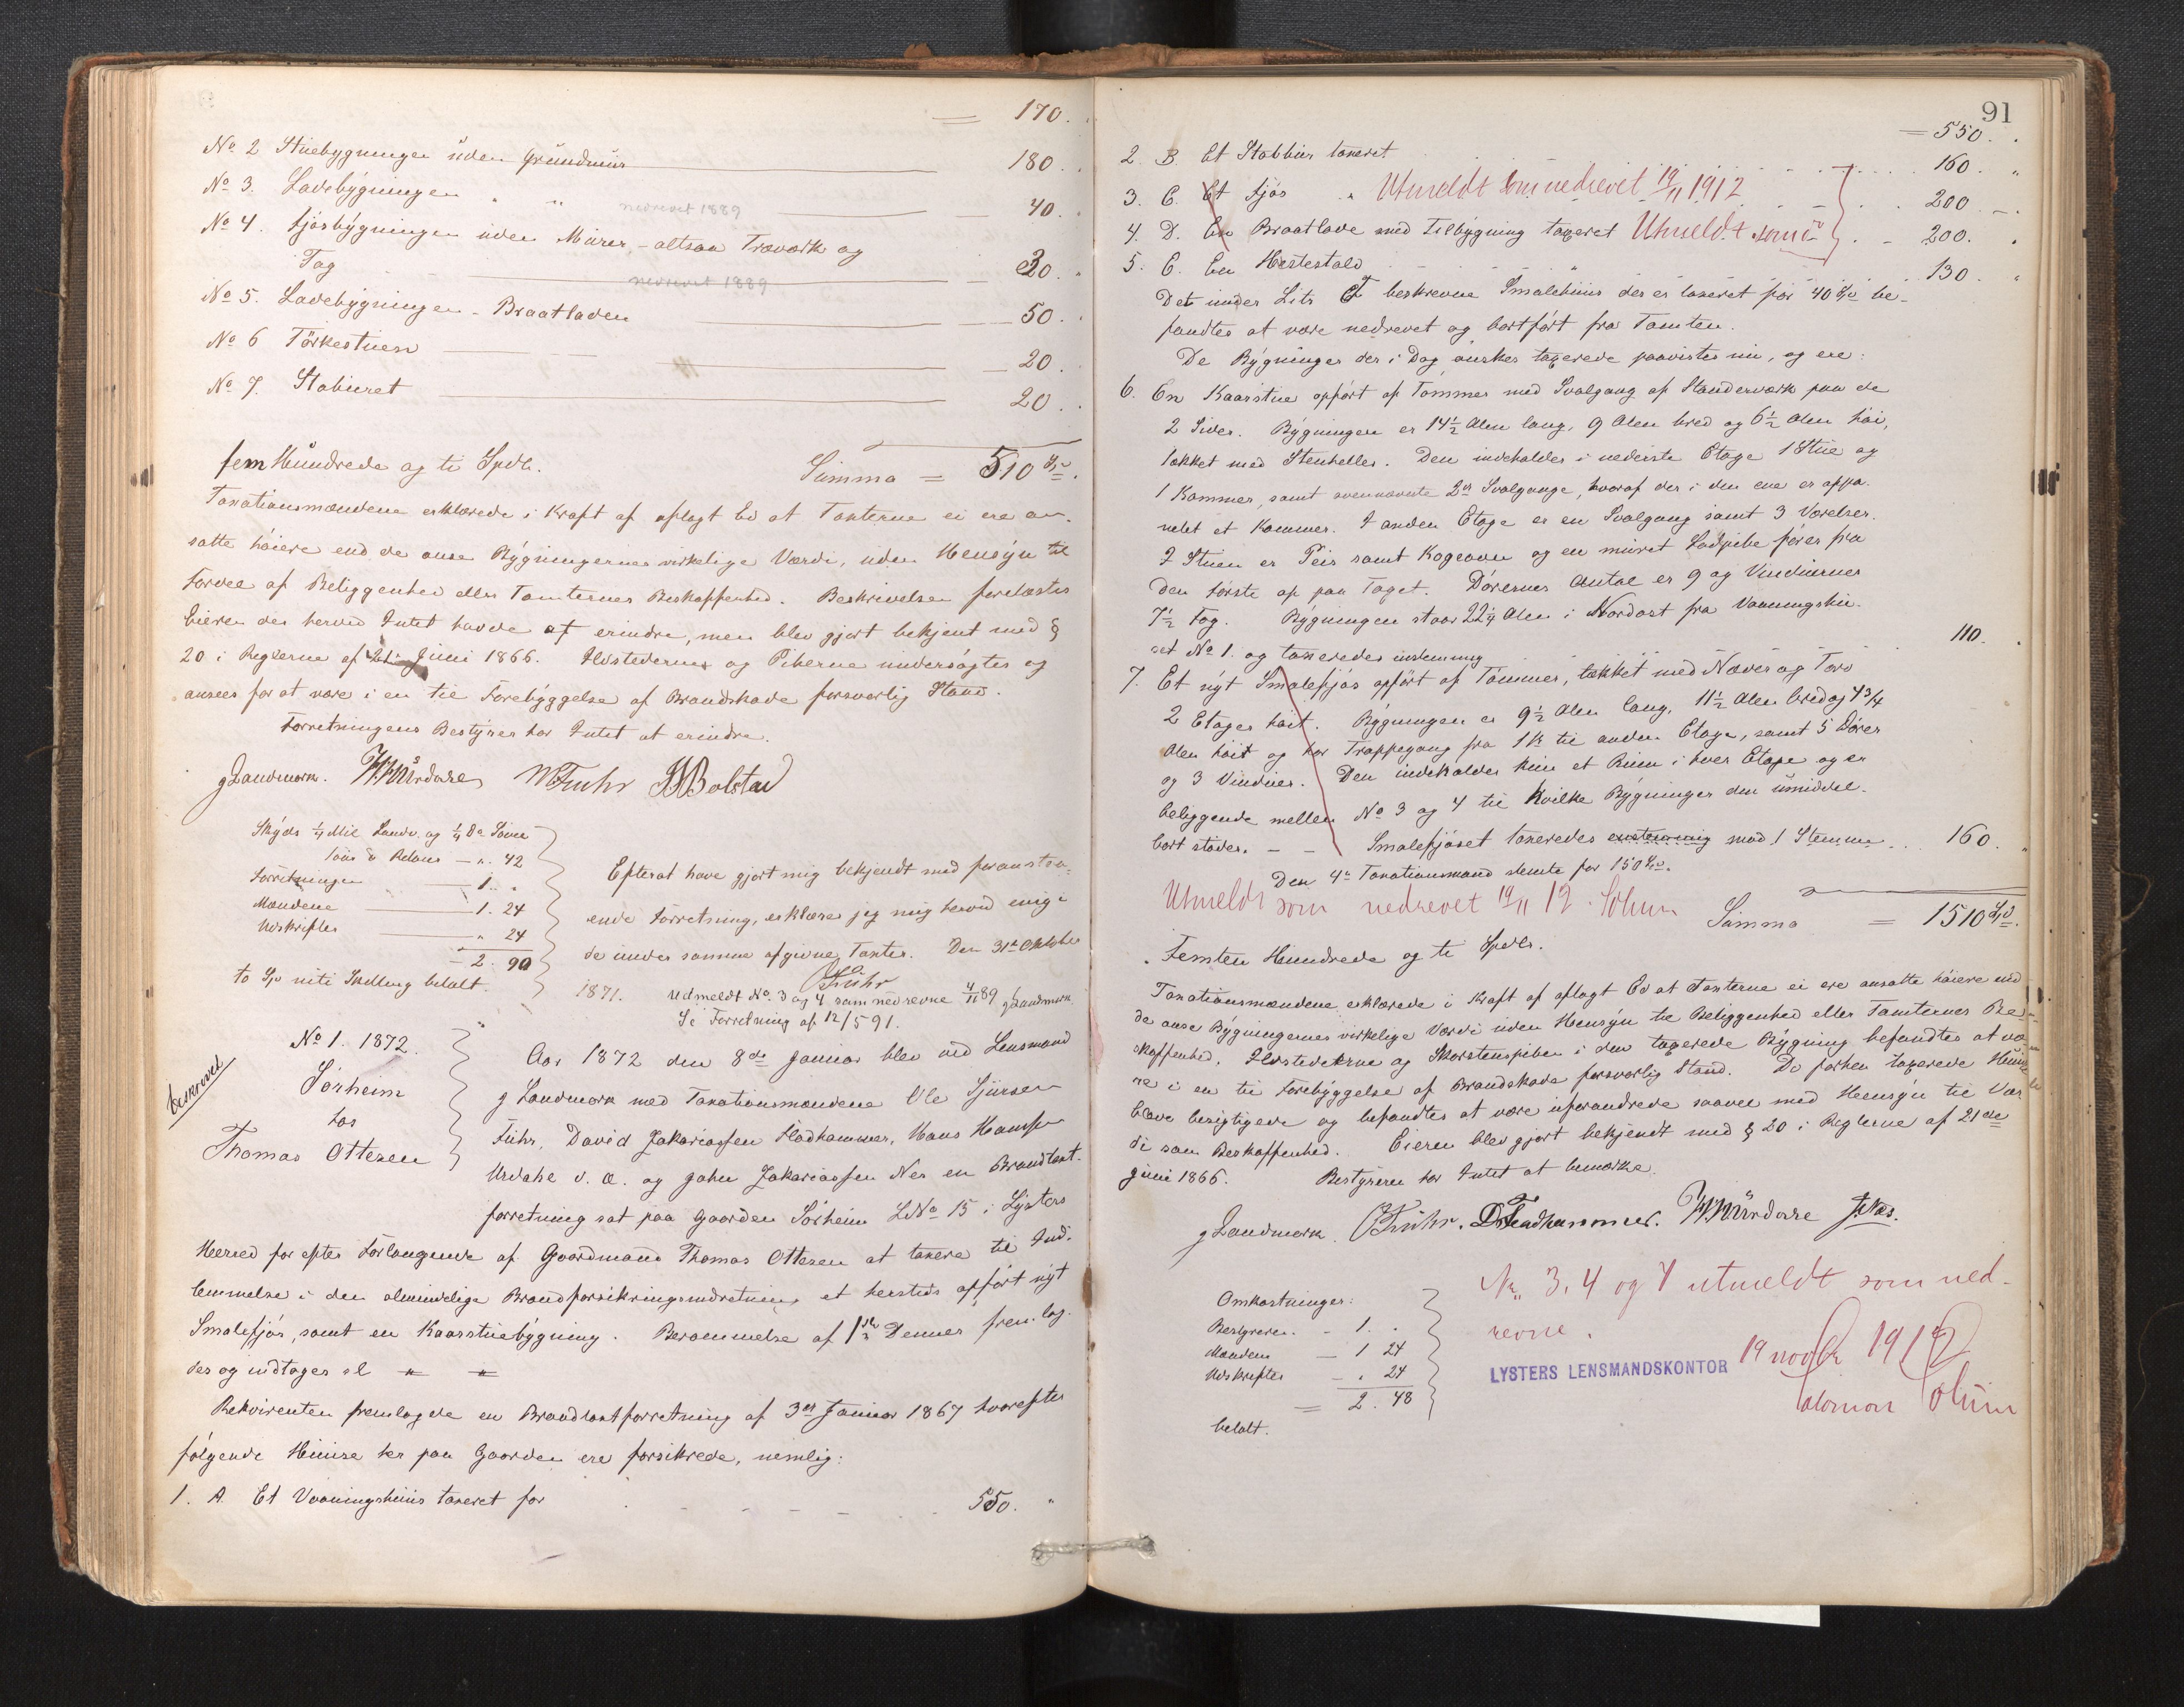 = 170.
No 2 Stuebygningen uden Grundmuur 180.
No 3. Ladebygningen " " nedrevet 1889 40.
No 4. Fjøsbygningen uden Murer, - altsaa Træværk og
Tag nedrevet 1889 30.
No 5. Ladebygningen - Braatladen 50.
No 6 Tørkestuen 20.
No 7. Staburet 20.
fem Hundrede og ti Spdlr. Summa = 510 Spd.
Taxationsmændene erklærede i Kraft af aflagt Ed at Taxterne ei ere an-
satte høiere end de anse Bygningernes virkelige Værdi, uden Hensyn til
Fordel af Beliggenhed eller Tomternes Beskaffenhed. Beskrivelsen forelæstes
Eieren der herved Intet havde at erindre, men blev gjort bekjent med §
20 i Reglerne af 21de Juni 1866. Ildstederne og Piberne undersøgtes og
ansees for at være i en til Forebyggelse af Brandskade forsvarlig Stand.
Forretningens Bestyrer har Intet at erindre.
g Landmark. H. Hurdahe Fuhr Bolstad
Skyds 1/4 Mil Landv. og 1/4 Do Søvei
Retour - ". 42
Forretningen 1. "
Mændene 1. 24
Udskrifter " 24
- 2. 90
to Spd niti Skilling betalt.
Efterat have gjort mig bekjendt med foranstaa-
ende Forretning, erklærer jeg mig herved enig i
de under samme afgivne Taxter. Den 31te Oktober
1871. Fuhr
Udmeldt No. 3 og 4 som nedrevne 4/11 89 g Landmark
Se Forretning af 12/5 91.
beskrevet
No 1. 1872.
Sørheim
hos
Thomas Ottesen
Aar 1872 den 8de Januar blev ved Lensmand
g Landmark med Taxationsmændene Ole Sjursen
Fuhr, David Zakariassen Fladhammer, Hans Hansen
Urdahe d. æ. og John Zakariassen Nes en Brandtaxt-
forretning sat paa Gaarden Sørheim LNo 15 i Lysters
Herred for efter Forlangende af Gaardmand Thomas Ottesen at taxere til Ind-
lemmelse i den almindelige Brandforsikringsindretning et hersteds opført nyt
Smalefjøs, samt en Kaarstuebygning. Berammelse af 1ste Dennes frem lag-
des og indtages sl " "
Rekvirenten fremlagde en Brandtaxtforretning af 3die Januar 1867 hvorefter
følgende Huuse her paa Gaarden ere forsikrede, nemlig:
1. A. Et Vaaningshuus taxeret for 550. "
91
= 550. .
2. B. Et Stabbur taxeret 160. "
3. C. Et Fjøs " Utmeldt som nedrevet 19/11 1912 200 - .
4. D. En Braatlade med Tilbygning taxeret Utmeldt som 200. .
5. E. En Hestestald 130. "
Det under Litr F beskrevne Smalehuus der er taxeret for 40 Spd be-
fandtes at være nedrevet og bortført fra Tomten.
De Bygninger der i Dag ønskes taxerede paavistes nu, og ere:
6. En Kaarstue opført af Tømmer med Svalgang af Standerværk paa de
2 Sider. Bygningen er 14 1/2 Alen lang, 9 Alen bred og 6 1/2 Alen høi,
tækket med Stenheller. Den indeholder i nederste Etage 1 Stue og
1 Kammer, samt ovennævnte 2de Svalgange, hvoraf der i den ene er afpa-
nelet et Kammer. I anden Etage er en Svalgang samt 3 Værelser.
I Stuen er Peis samt Kogeovn og en muret Ladpibe fører fra
den første op paa Taget. Dørernes Antal er 9 og Vinduernes
7 1/2 Fag. Bygningen staar 22 1/4 Alen i Nordost fra Vaaningshu-
set No 1. og taxeredes instemmig 110. .
7. Et nyt Smalefjøs opført af Tømmer, tækket med Næver og Torv
2 Etager høit. Bygningen er 9 1/2 Alen lang, 11 1/2 Alen bred og 7 3/4
Alen høit og har Trappegang fra 1ste til anden Etage, samt 5 Dører
og 3 Vinduer. Den indeholder kun et Rum i hver Etage og er
beliggende mellem No 3 og 4 til hvilke Bygninger den umiddel-
bart støder. - - Smalefjøset taxeredes enstemmig mod 1 Stemme 160. "
Den 4de Taxationsmand stemte for 150 Spd.
Utmeldt som nedrevet 19/11 12. Solum Summa = 1510 Spd.
Femten Hundrede og ti Spdlr.
Taxationsmændene erklærede i Kraft af aflagt Ed at Taxterne ei ere ansatte høiere end
de anse Bygningernes virkelige Værdi uden Hensyn til Beliggenhed eller Tomternes Be-
skaffenhed. Ildstederne og Skorstenspiben i den taxerede Bygning befandtes at væ-
re i en til Forebyggelse af Brandskade forsvarlig Stand. De forhen taxerede Huuse
bleve besigtigede og befandtes at være uforandrede saavel med Hensyn til Vær-
di som Beskaffenhed. Eieren blev gjort bekjendt med § 20 i Reglerne af 21de
Juni 1866. Bestyreren har Intet at bemærke.
g Landmark. Fuhr. D. Fladhammer. H. Hurdahe J. Nes.
Omkostninger:
Bestyreren. - 1. .
Mændene - 1 24
Udskrifter - . 24
= 2. 48
betalt.
No. 3, 4 og 7 utmeldt som ned-
revne.
LYSTERS LENSMANDSKONTOR 19 novbr 1912
Salomon Solum